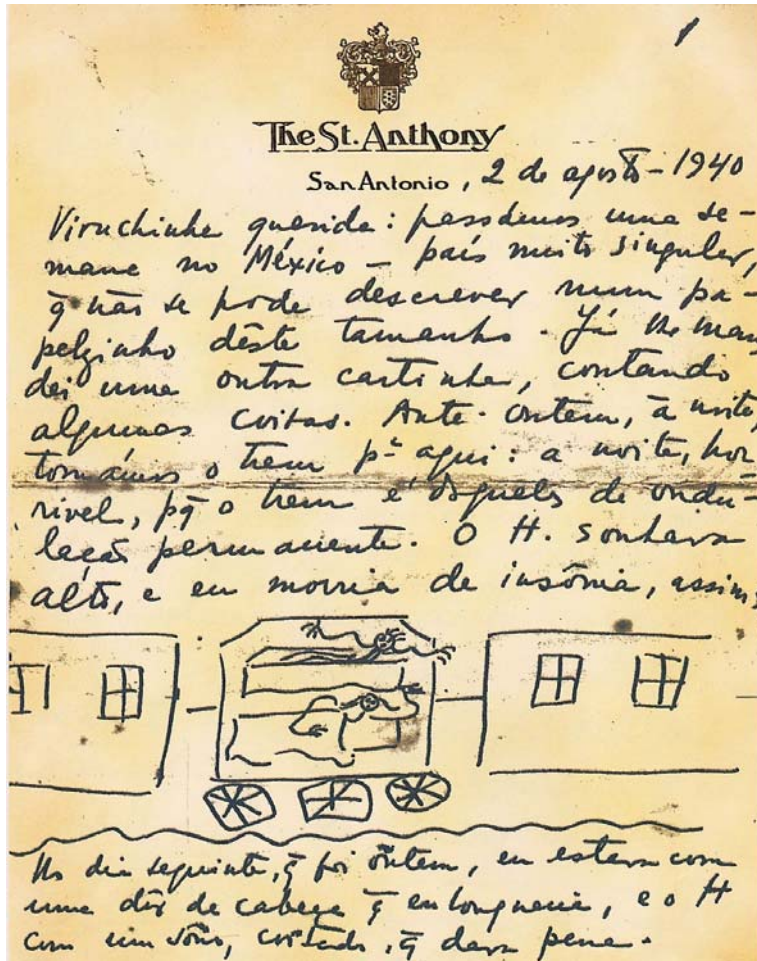 1
The St. Anthony
San Antonio, 2 de agosto - 1940
Viruchinha querida: passámos uma se-
mana no México – país muito singular,
q̄ não se pode descrever num pa-
pelzinho dêste tamanho. Já lhe man
dei uma outra cartinha, contando
algumas coisas. Ante-ontem, à noite,
tomámos o trem pª aqui: a noite, hor
rível, pq̄ o trem é daqueles de ondu-
lação permanente. O H. sonhava
alto, e eu morria de insônia, assim:
No dia seguinte, q̄ foi ôntem, eu estava com
uma dôr de cabeça q̄ enlouquecia, e o H
com um sôno, coitado, q̄ dava pena.